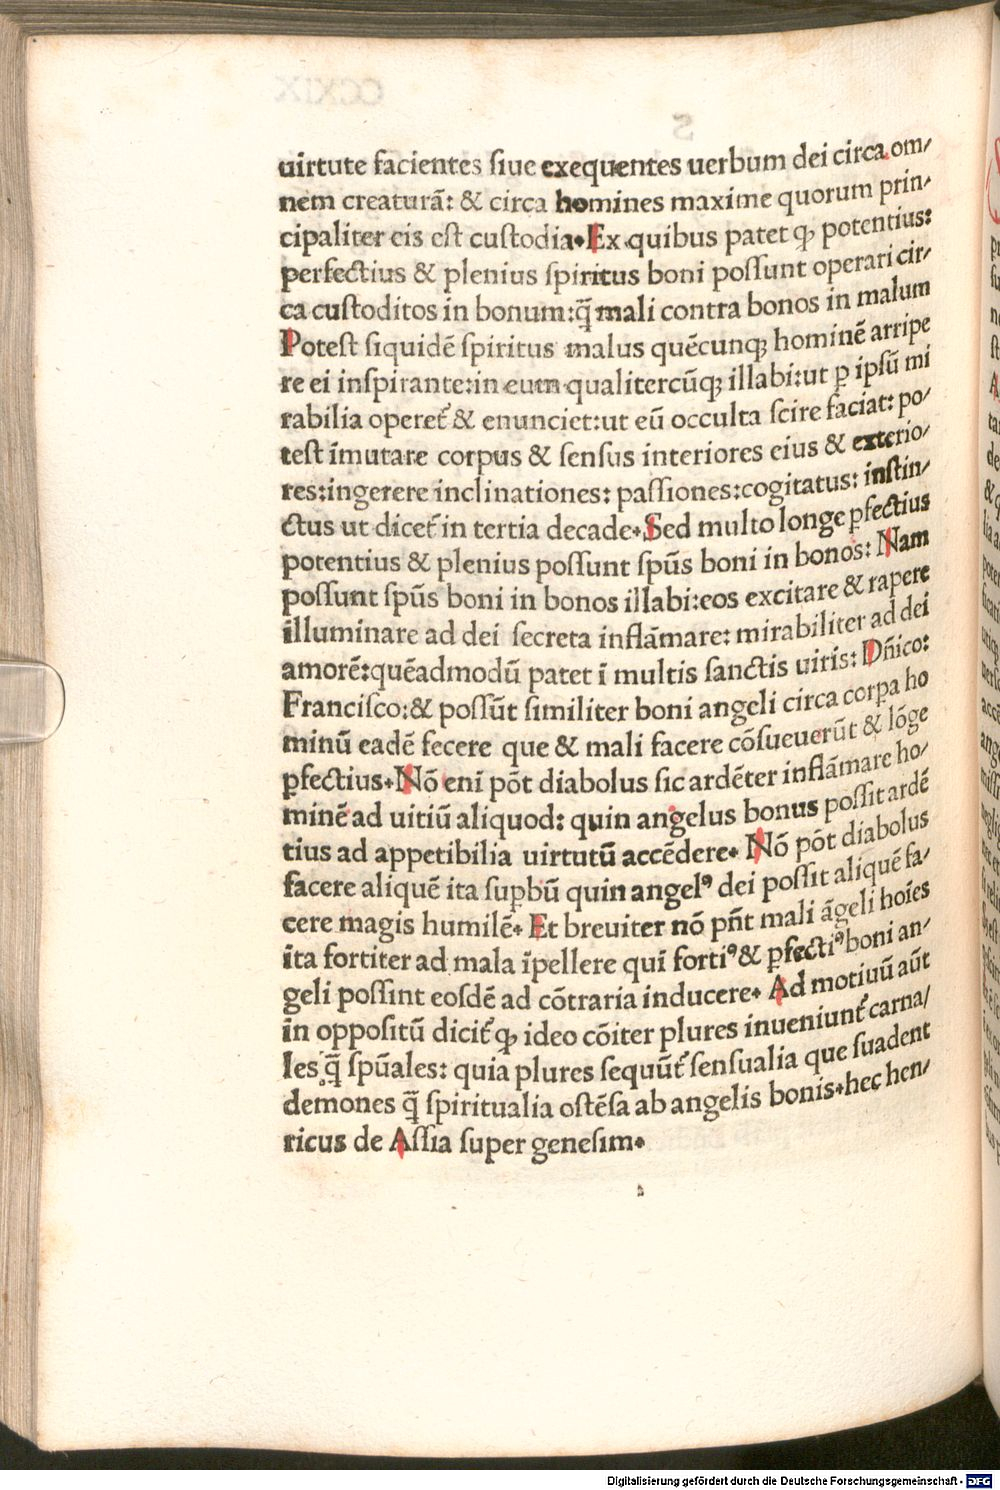 uirtute facientes ſiue exequentes uerbum dei circa om/
nem creaturā: & circa homines maxime quorum prin/
cipaliter eis eſt cuſtodia. Ex quibus patet ꝙ potentius:
perfectius & plenius ſpiritus boni poſſunt operari cir/
ca cuſtoditos in bonum: q̄ mali contra bonos in malum
Poteſt ſiquidē ſpiritus malus quēcunqꝫ hominē arripe
re ei inſpirante: in eum qualitercūqꝫ illabi: ut ꝑ ipſū mi
rabilia operet᷑ & enunciet: ut eū occulta ſcire faciat: po/
teſt īmutare corpus & ſenſus interiores eius & exterio/
res: ingerere inclinationes: paſſiones: cogitatus: inſtin/
ctus ut dicet᷑ in tertia decade. Sed multo longe ꝑfectius
potentius & plenius poſſunt ſpūs boni in bonos: Nam
poſſunt ſpūs boni in bonos illabi: eos excitare & rapere
illuminare ad dei ſecreta inflāmare: mirabiliter ad dei
amorē: quēadmodū patet ī multis ſanctis uiris: Dn̄ico:
Franciſco: & poſſūt ſimiliter boni angeli circa corꝑa ho
minū eadē fecere que & mali facere cōſueuerūt & lōge
ꝑfectius. Nō enī pōt diabolus ſic ardēter inflāmare ho/
minē ad uitiū aliquod: quin angelus bonus poſſit ardē
tius ad appetibilia uirtutū accēdere. Nō pōt diabolus
facere aliquē ita ſuꝑbū quin angelꝰ dei poſſit aliquē fa/
cere magis humilē. Et breuiter nō pn̄t mali āgeli hoīes
ita fortiter ad mala īpellere qui fortiꝰ & ꝑfectiꝰ boni an/
geli poſſint eoſdē ad cōtraria inducere. Ad motiuū aūt
in oppoſitū dicit᷑ ꝙ ideo cōiter plures inueniunt᷑ carna/
les q̄ ſpūales: quia plures ſequūt᷑ ſenſualia que ſuadent
demones q̄ ſpiritualia oſtēſa ab angelis bonis. hec hen/
ricus de Aſſia ſuper geneſim.
Digitalisierung gefördert durch die Deutsche Forschungsgemeinschaft - DFG